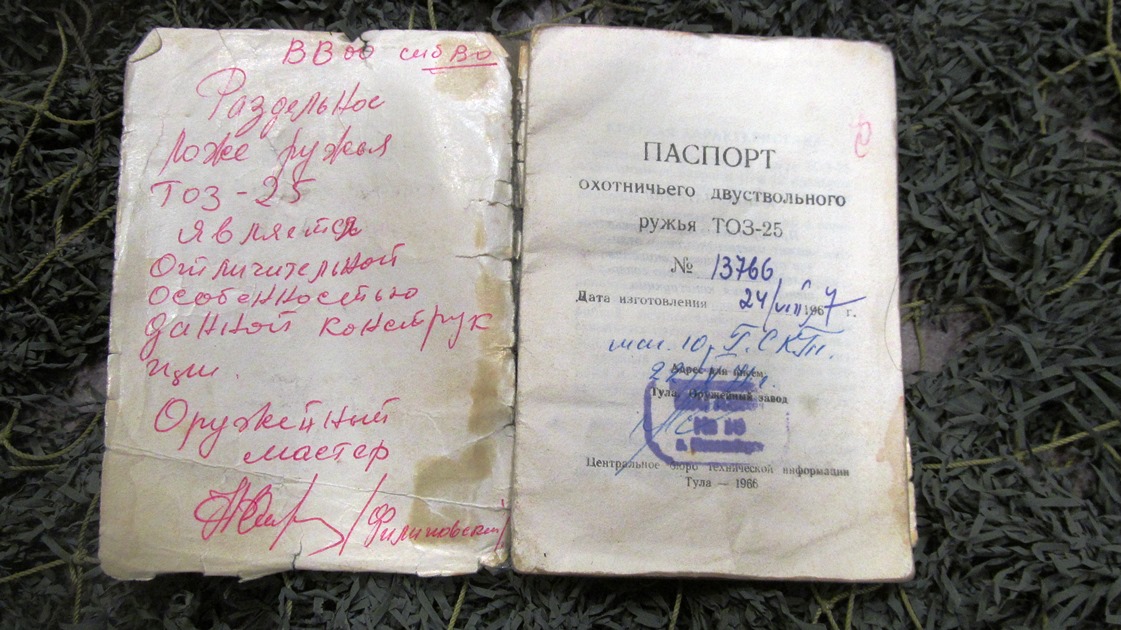 ВВоо сибВо
Раздельное
ложе ружья
ТОЗ-25
является
отличительной
особенностью
данной конструк
ции.
Оружейный
мастер
/Филиповский/
ПАСПОРТ
охотничьего двуствольного
ружья ТОЗ-25
№ 13766
Дата изготовления 24/VIII 1967 г.
маг. 10,
Адрес для писем:
Тула, Оружейный завод
№ 10
Центральное бюро технической информации
Тула — 1966